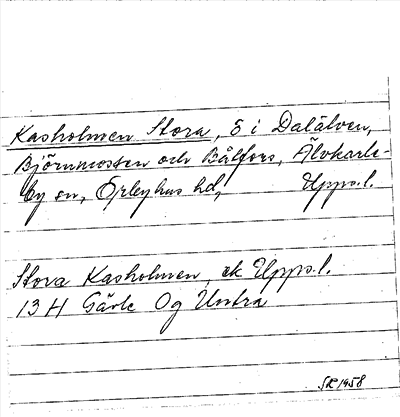 Kasholmen Stora, ö i Dalälven,
Björnmossen och Bålfors, Älvkarle-
by sn, Örbyhus hd, Upps.l.
Stora Kasholmen, ek Upps.l.
13 H Gävle Og Untra
SR 1958